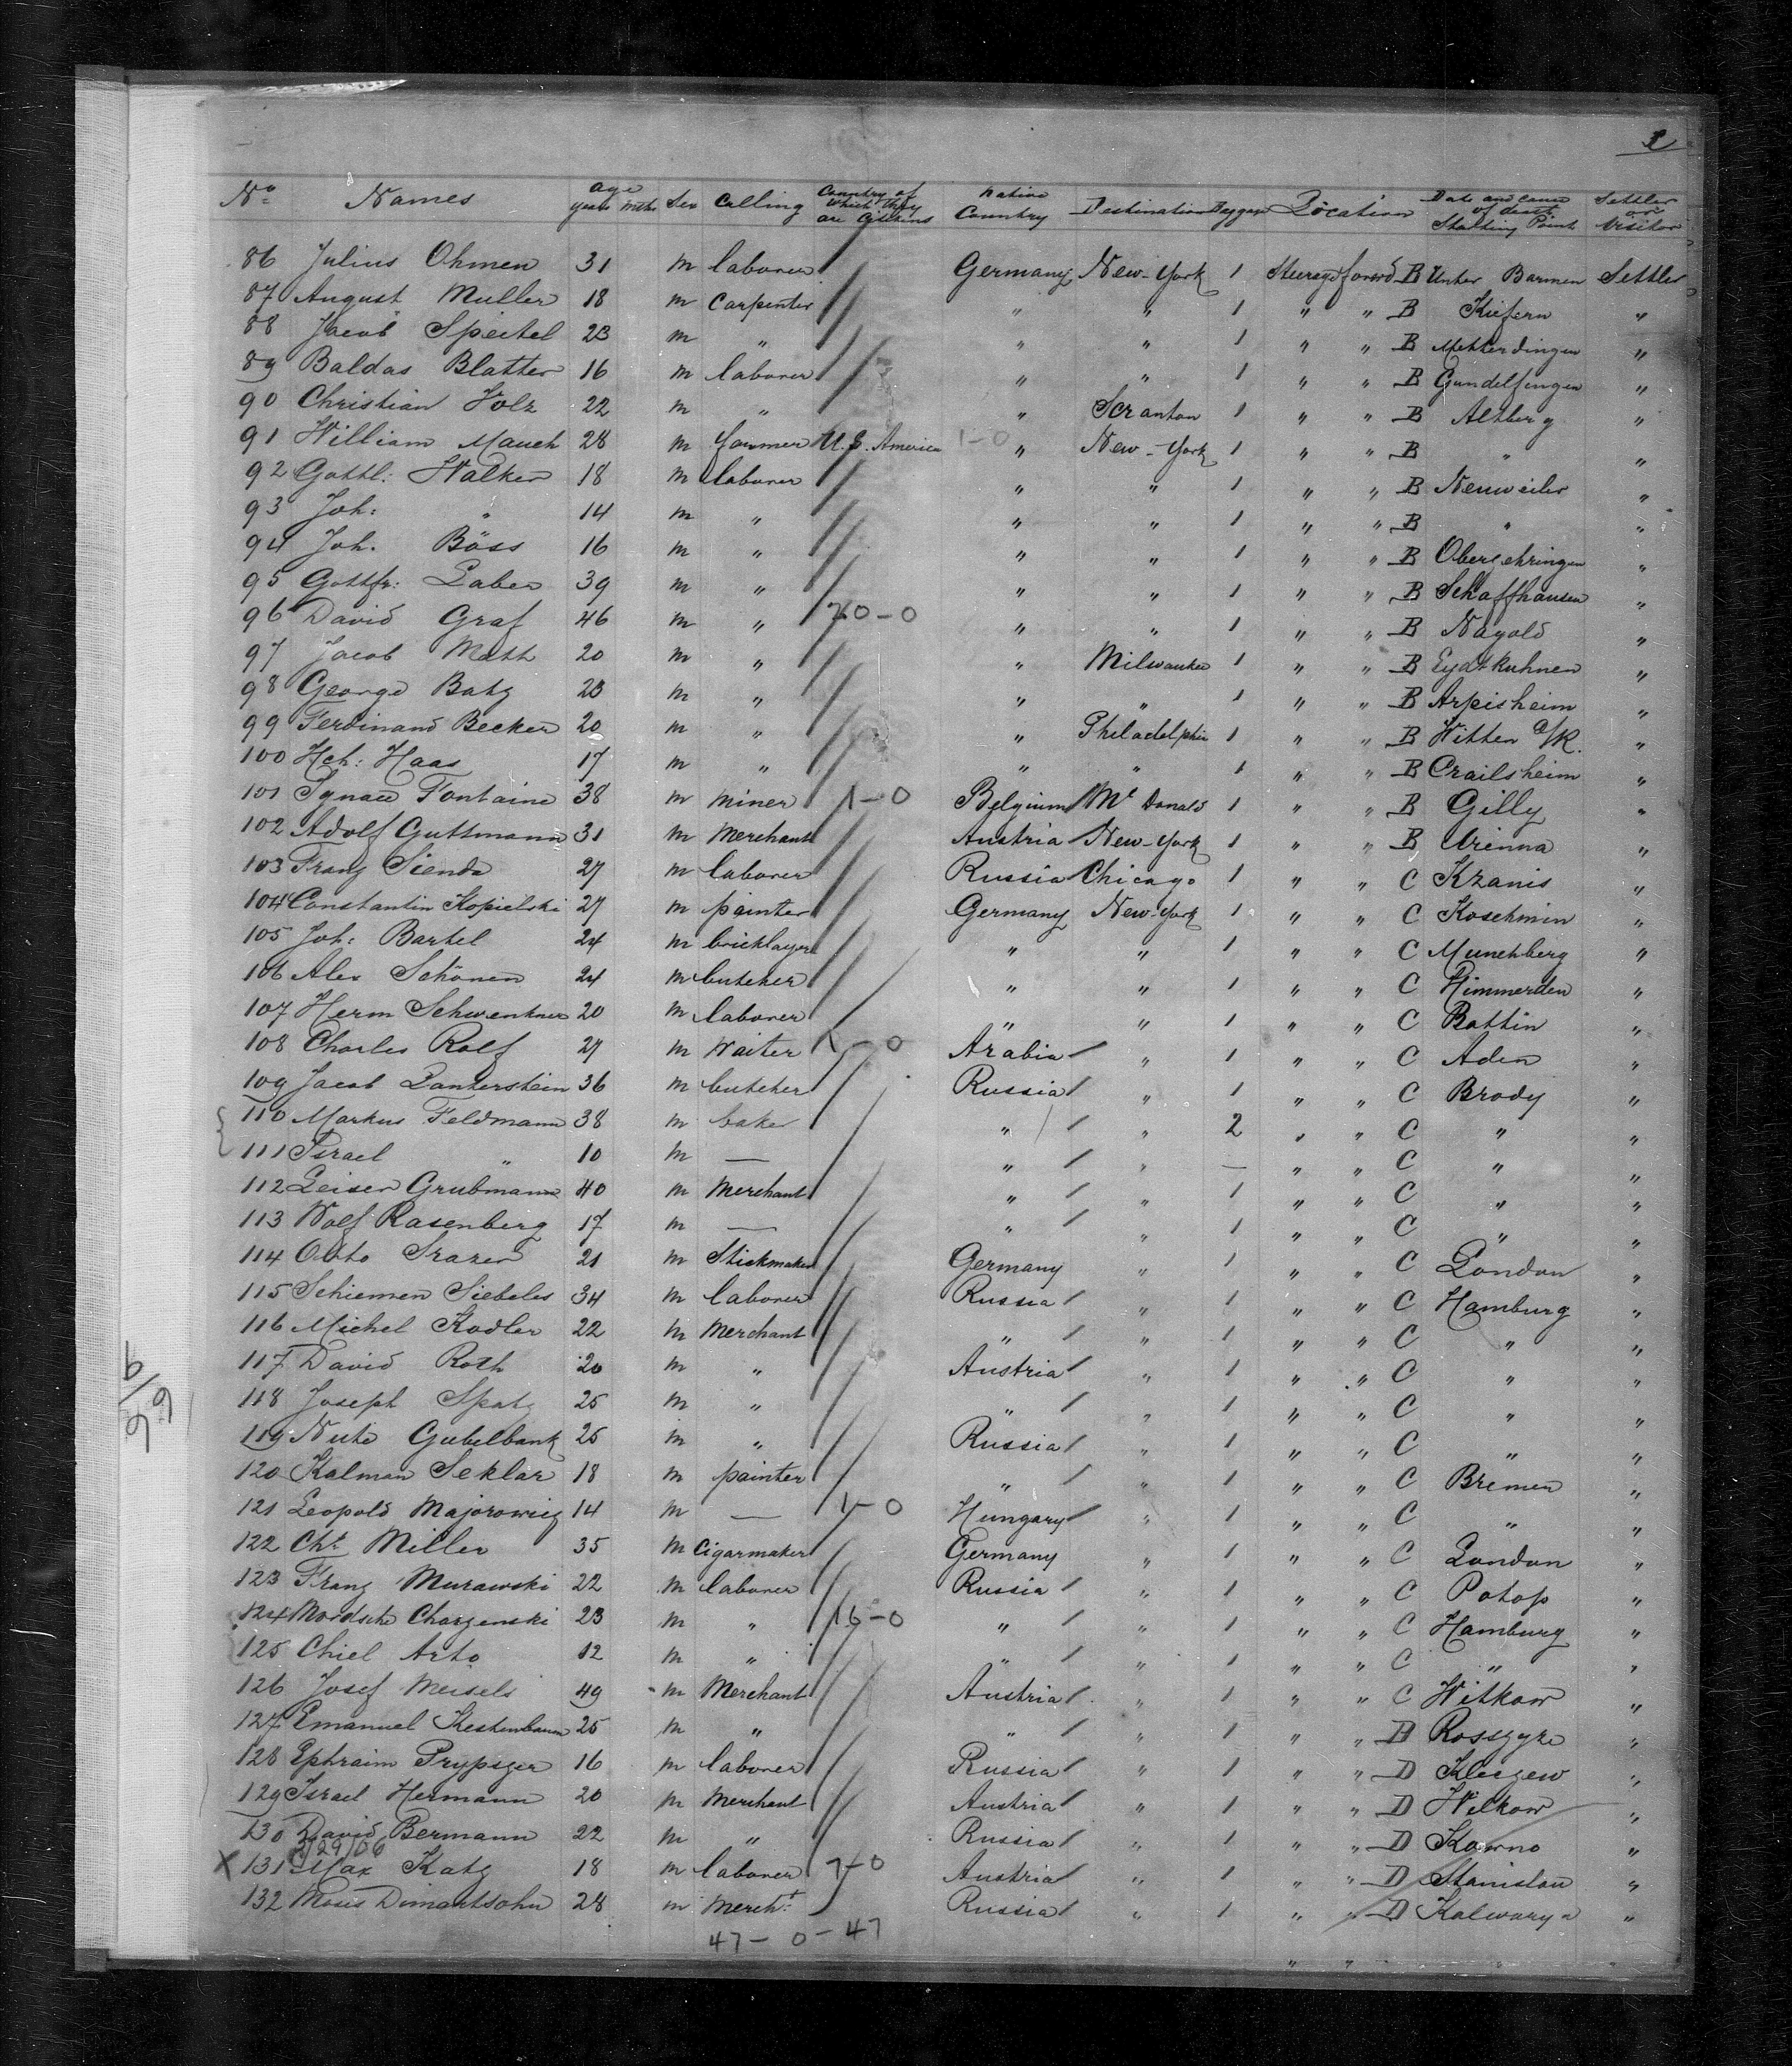 2
No Names age years mths Sex Calling Country of which they are Citizens Native Country Destination Baggage Location Date and cause of death Starting Point Settler or Visitor
86 Julius Ohmen 31 m laborer Germany New-York 1 Steerage forwd B Unter Barmen Settler
87 August Muller 18 m Carpenter " " 1 " " B Kiefern "
88 Jacob Speitel 23 m " " " 1 " " B Metterdingen "
89 Baldas Blatter 16 m laborer " " 1 " " B Gundelfingen "
90 Christian Holz 22 m " " Scranton 1 " " B Altberg "
91 William Mauch 28 m farmer U.S. America 1-0 " New-York 1 " " B " "
92 Gottl: Walker 18 m laborer " " 1 " " B Neuweiler "
93 Joh: " 14 m " " " 1 " " B " "
94 Joh. Böss 16 m " " " 1 " " B "
95 Gottfr: Laber 39 m " " " 1 " " B Schaffhausen "
96 David Graf 46 m " 20-0 " " 1 " " B Nagold "
97 Jacob Math 20 m " " Milwaukee 1 " " B Eydtkuhnen "
98 George Batz 23 m " " " 1 " " B Arpisheim "
99 Ferdinand Becker 20 m " " Philadelphia 1 " " B Witten a/R. "
100 Hch: Haas 17 m " " " 1 " " B Crailsheim "
101 Ignace Fontaine 38 m miner 1-0 Belgium Mc Donald 1 " " B Gilly "
102 Adolf Guttmann 31 m Merchant Austria New-York 1 " " B Vienna "
103 Franz Sienda 27 m laborer Russia Chicago 1 " " C Kzanis "
104 Constantin Kopielski 27 m painter Germany New-York 1 " " C Koschmin "
105 Joh: Bartel 24 m bricklayer " " 1 " " C Munchberg "
106 Alex Schönen 24 m butcher " " 1 " " C Himmerden "
107 Herm Schwenkner 20 m laborer " " 1 " " C Battin "
108 Charles Rolf 27 m Waiter 1-0 Arabia " 1 " " C Aden "
109 Jacob Lanterstein 36 m butcher Russia " 1 " " C Brody "
110 Markus Feldmann 38 m baker " " 2 " " C " "
111 Israel " 10 m — " " — " " C " "
112 Leiser Grubmann 40 m Merchant " " 1 " " C " "
113 Wolf Rasenberg 17 m — " " 1 " " C " "
114 Otto Srazer 21 m Stickmaker Germany " 1 " " C London "
115 Schiemen Siebeles 34 m laborer Russia " 1 " " C Hamburg "
116 Michel Kodler 22 m Merchant " " 1 " " C " "
117 David Roth 20 m " Austria " 1 " " C " "
118 Joseph Spatz 25 m " " " 1 " " C " "
119 Nute Gubelbank 25 m " Russia " 1 " " C " "
120 Kalman Seklar 18 m painter " " 1 " " C Bremen "
121 Leopold Majorowicz 14 m — 1-0 Hungary " 1 " " C " "
122 Cht Miller 35 m Cigarmaker Germany " 1 " " C London "
123 Franz Murawski 22 m laborer Russia " 1 " " C Potop "
124 Mordsche Chazenski 23 m " 16-0 " " 1 " " C Hamburg "
125 Chiel Arto 12 m " " " 1 " " C " "
126 Josef Meisels 49 m Merchant Austria " 1 " " C Witkow "
127 Emanuel Kestenbaum 25 m " " " 1 " " D "
128 Ephraim Prypszer 16 m laborer Russia " 1 " " D Kleczew "
129 Israel Hermann 20 m Merchant Austria " 1 " " D Wilkow "
130 David Bermann 22 m " Russia " 1 " " D Kowno "
3/29/06
X 131 Max Katz 18 m laborer 7-0 Austria " 1 " " D Stanislau "
132 Moses Dimantsohn 28 m Mercht. Russia " 1 " " D Kalwarya "
47-0-47
" " " "